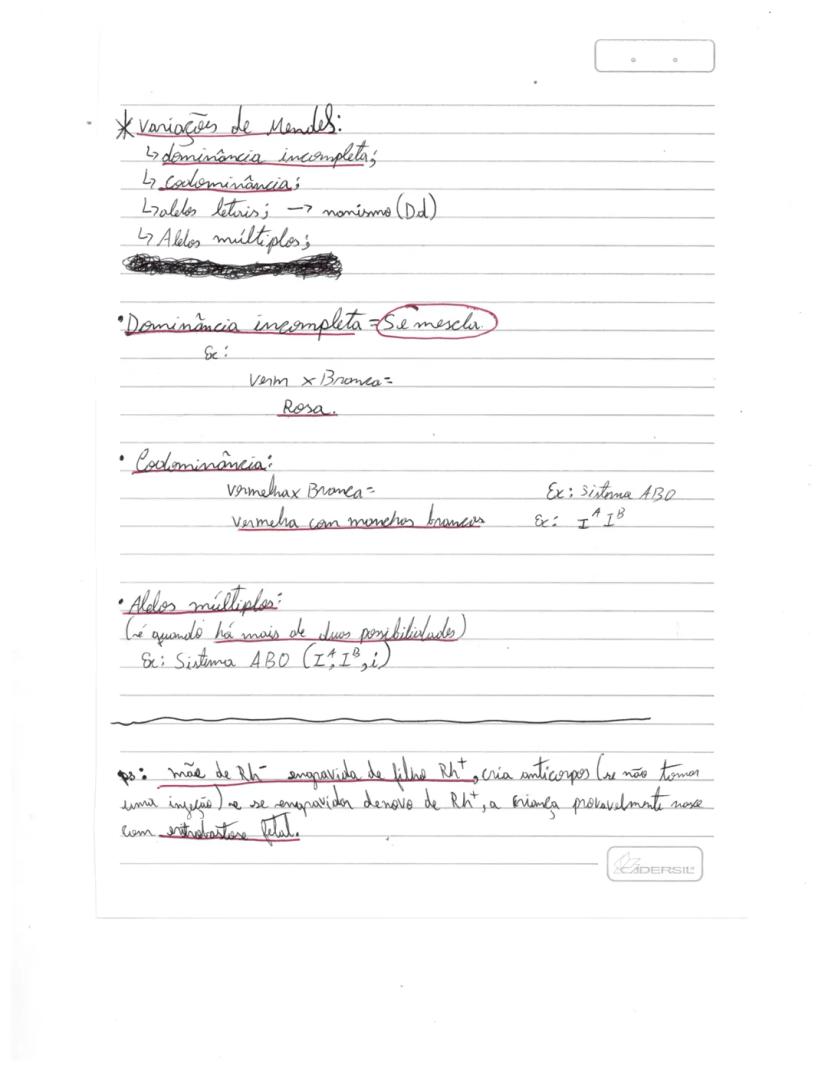 * Variações de Mendel:
↳ dominância incompleta;
↳ codominância;
↳ alelos letais; → nanismo (Dd)
↳ Alelos múltiplos;
• Dominância incompleta = Se mescla.
Ex:
Verm x Branca =
Rosa.
• Codominância:
vermelha x Branca = Ex: Sistema ABO
vermelha com manchas brancas Ex: I^A I^B
• Alelos múltiplos:
(é quando há mais de duas possibilidades)
Ex: Sistema ABO (I^A, I^B, i)
ps: mãe de Rh⁻ engravida de filho Rh⁺, cria anticorpos (se não tomar
uma injeção) e se engravidar denovo de Rh⁺, a criança provavelmente nasce
com fetal.
CADERSIL